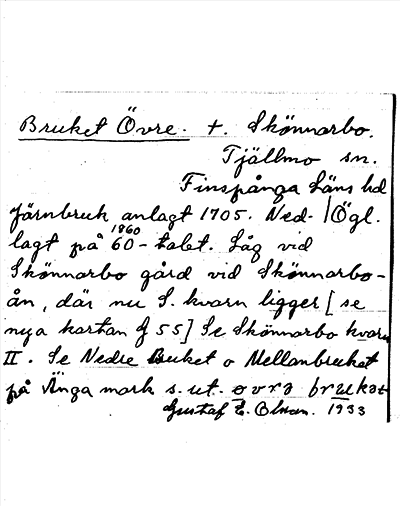 Bruket Övre. +. Skönnarbo.
Tjällmo sn.
Finspånga Läns hd
Järnbruk anlagt 1705. Ned- | Ögl.
1860
lagt på 60-talet. Låg vid
Skönnarbo gård vid Skönnarbo-
ån, där nu S. kvarn ligger [se
nya kartan f 55] Se Skönnarbo kvarn
II. Se Nedre Bruket o Mellanbruket
på Änga mark s. ut. øvrə brukət
Gustaf E. 1933